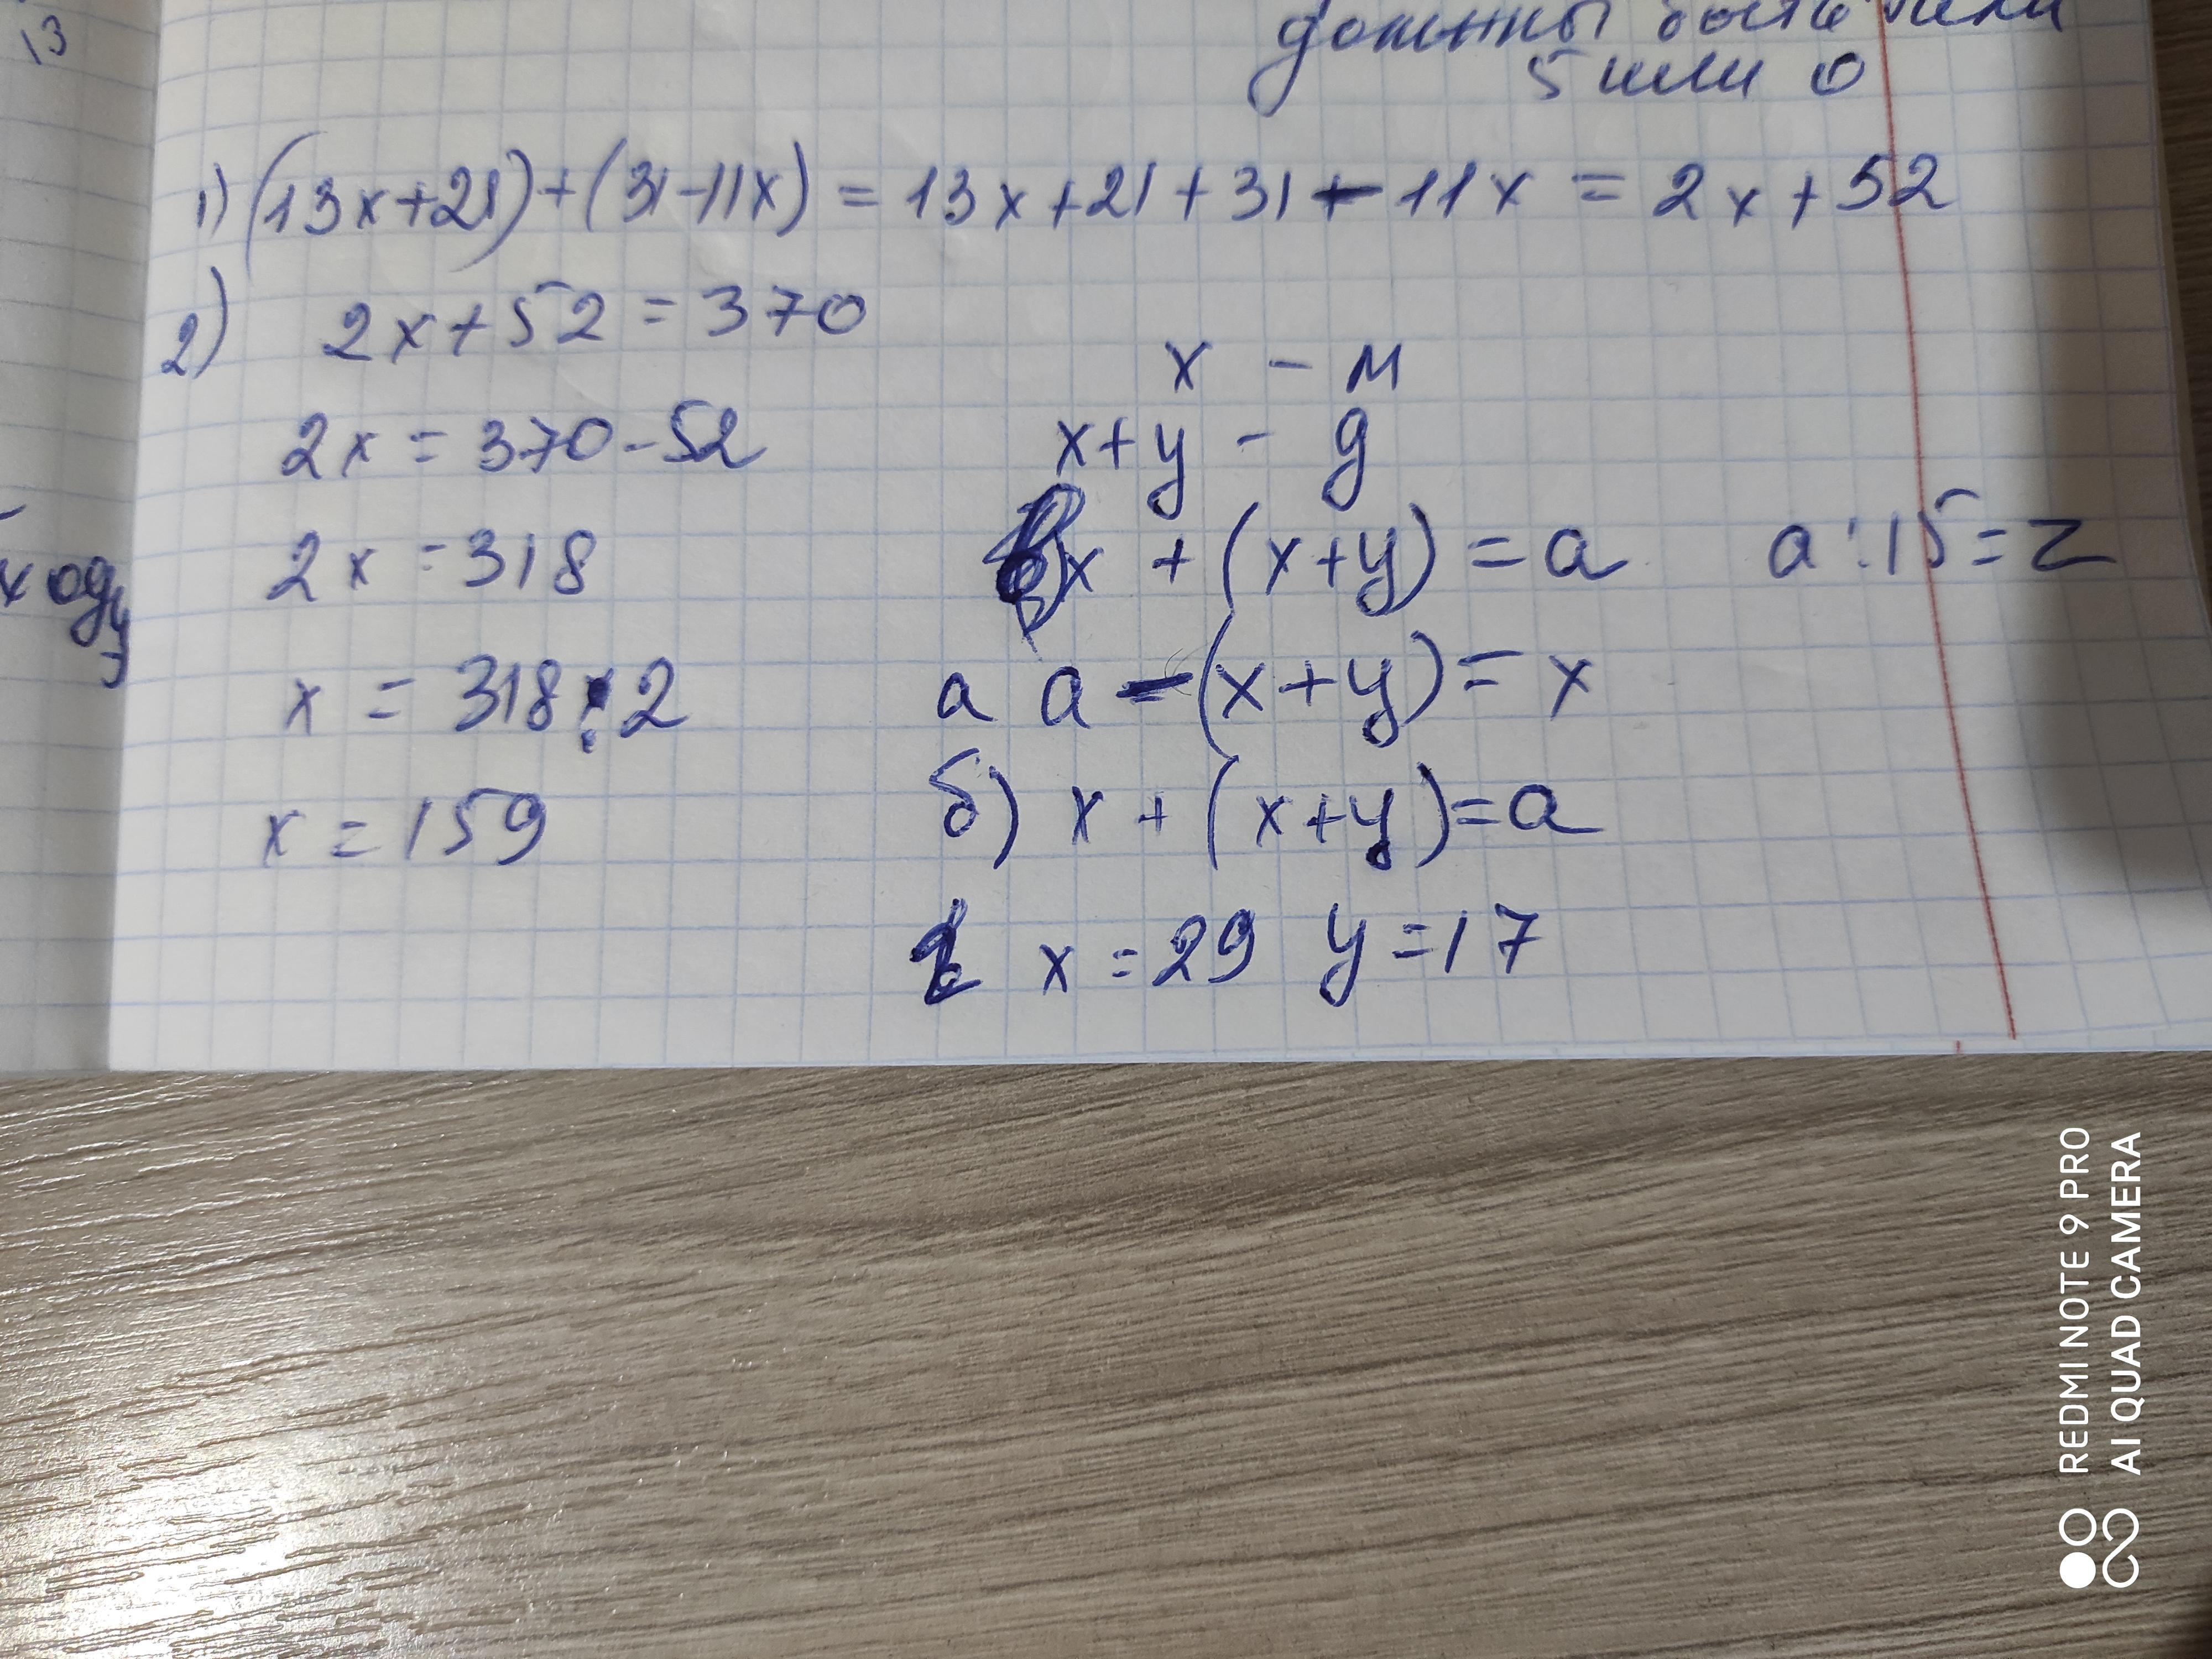 13
должны быть
5 или 0
1) (13x+21)+(31-11x) = 13x+21+31-11x = 2x+52
2) 2x+52=370
2x = 370-52
2x = 318
x = 318:2
x = 159
x - м
x+y - g
x + (x+y) = a a:15=z
а a-(x+y)= x
б) x + (x+y)=a
x=29 y=17
REDMI NOTE 9 PRO
AI QUAD CAMERA